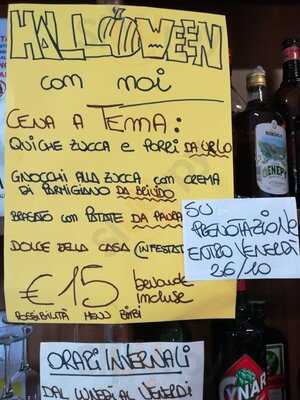 HALLOWEEN
con noi
CENA A TEMA:
QUICHE ZUCCA E PORRI DA URLO
GNOCCHI ALLA ZUCCA CON CREMA
DI PARMIGIANO DA BRIVIDO
BRASATO CON PATATE DA PAURA
DOLCE DELLA CASA (INFESTAT
€15 bevande
incluse
POSSIBILITÀ MENÙ BIMBI
SU
PRENOTAZIONE
ENTRO VENERDI
26/10
ORARI INVERNALI
DAL LUNEDI AL VENERDI
GENEPY
YNAR